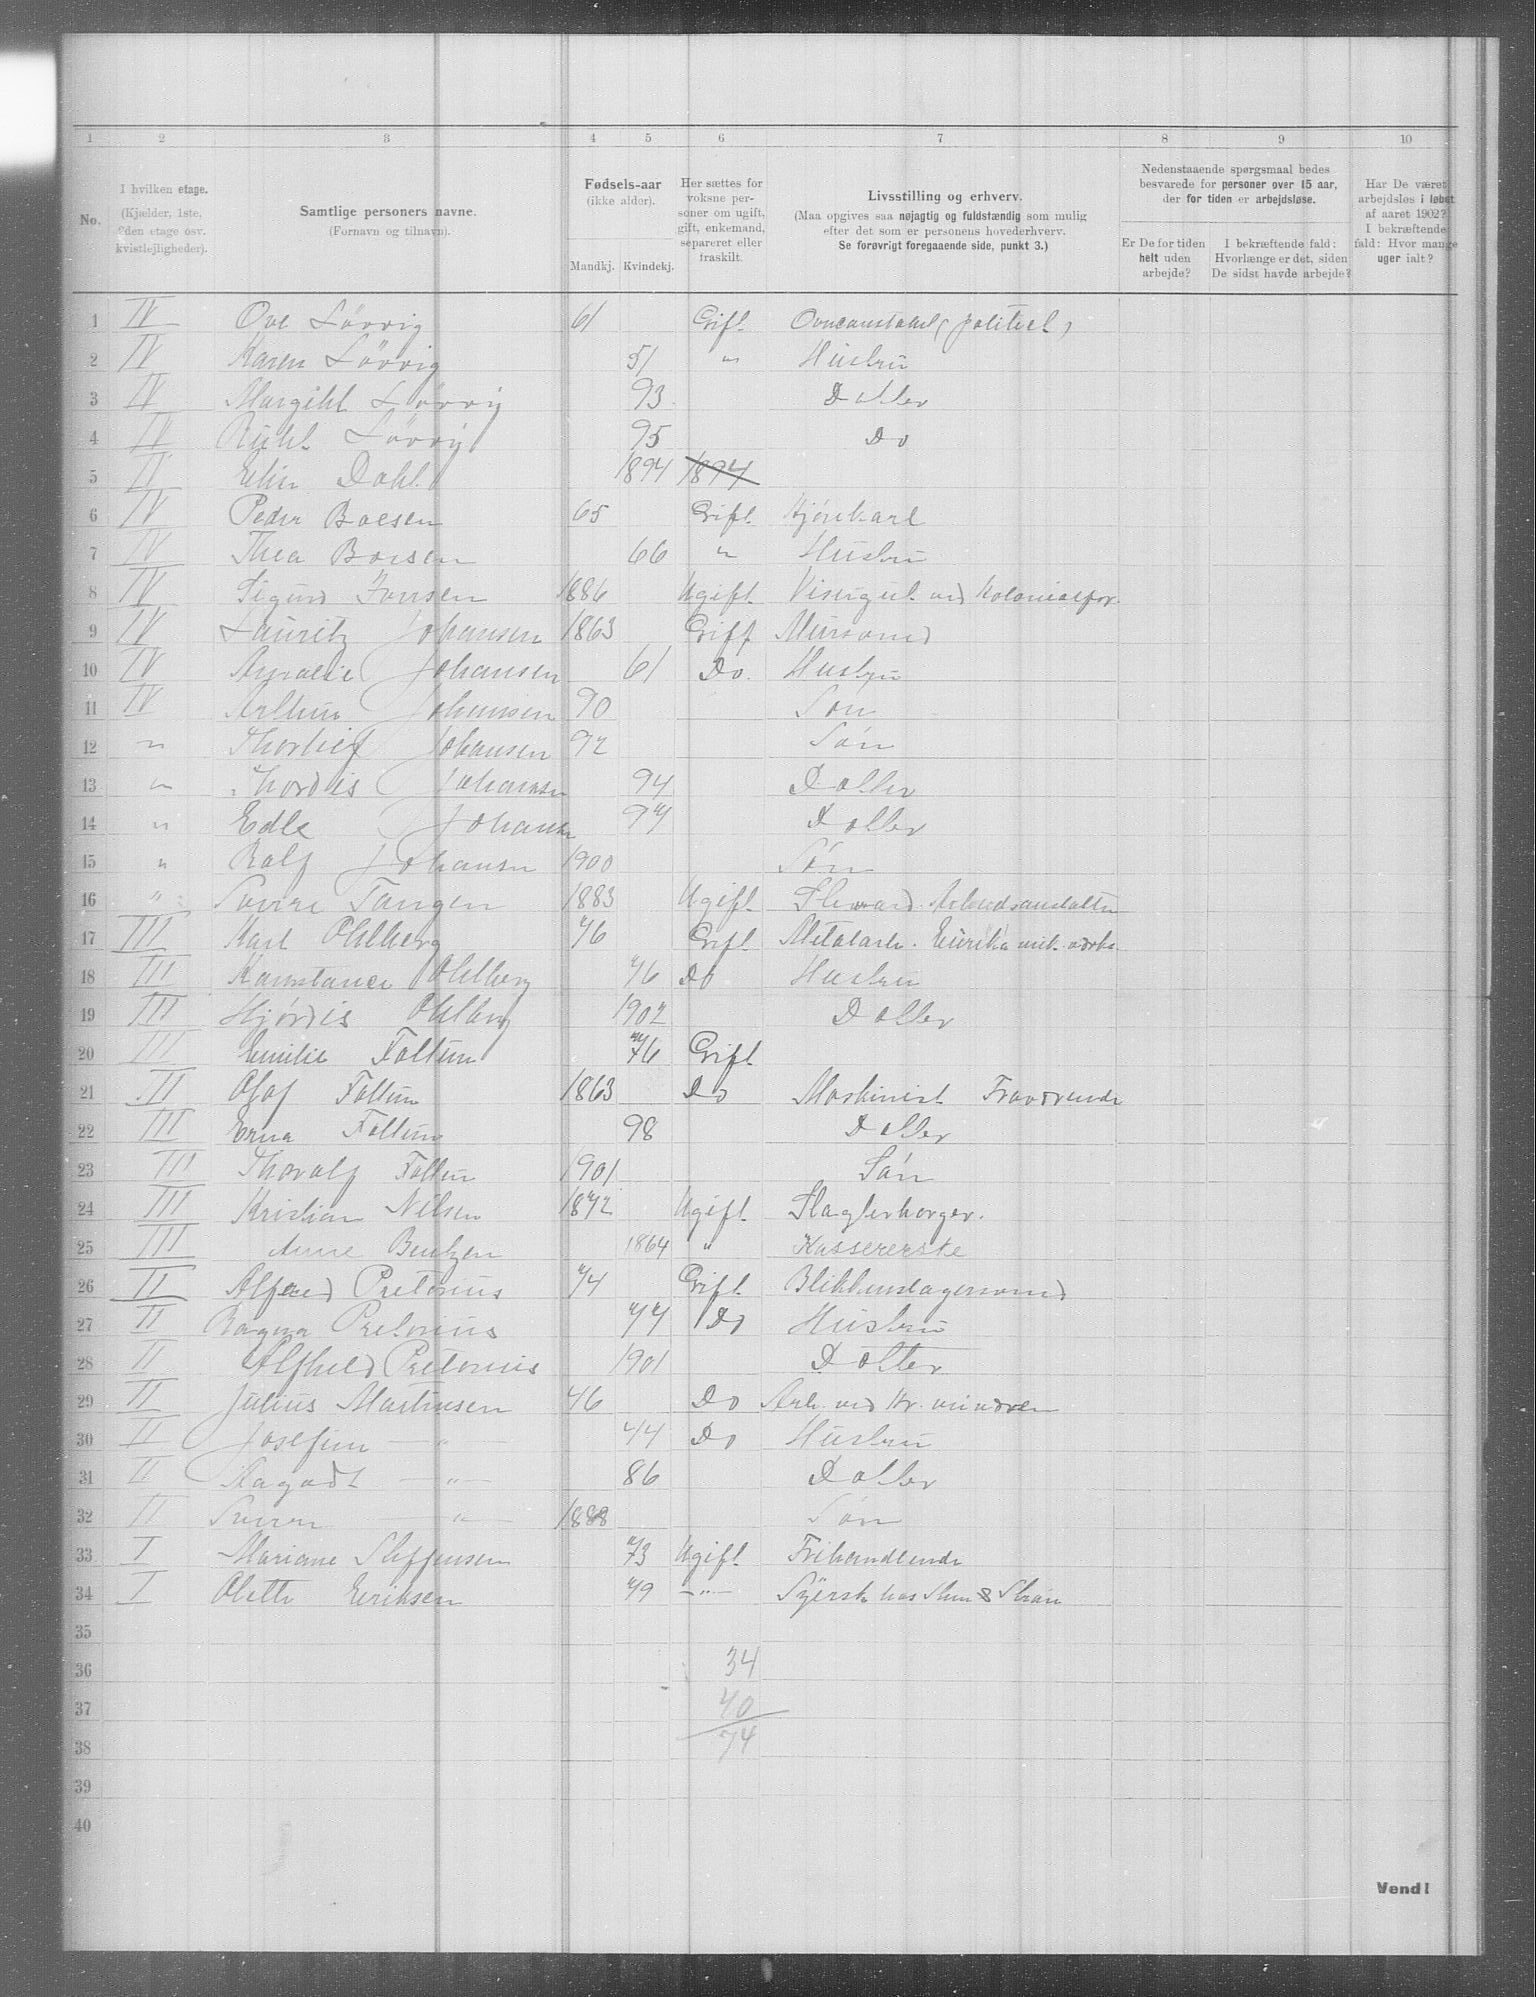 1 2 3 4 5 6 7 8 9 10
No.
I hvilken etage.
(Kjælder, 1ste,
2den etage osv.
kvistleiligheder).
Samtlige personers navne.
(Fornavn og tilnavn).
Fødsels-aar
(ikke alder).
Mandkj. Kvindekj.
Her sættes for
voksne per-
soner om ugift,
gift, enkemand,
separeret eller
fraskilt.
Livsstilling og erhverv.
(Maa opgives saa nøjagtig og fuldstændig som mulig
efter det som er personens hovederhverv.
Se forøvrigt foregaaende side, punkt 3.)
Nedenstaaende spørgsmaal bedes
besvarede for personer over 15 aar,
der for tiden er arbejdsløse.
Er De for tiden
helt uden
arbejde?
I bekræftende fald:
Hvorlænge er det, siden
De sidst havde arbejde?
Har De været
arbejdsløs i løbet
af aaret 1902?
I bekræftende
fald: Hvor mange
uger ialt?
1 IV Ove Lövvig 61 Gift
2 IV Karen Lövvig 51 " Hustru
3 IV Margihl Lövvig 93 Datter
4 IV Ruhl Lövvig 95 Do
5 IV Elin Dahl 1894 1894
6 IV Peder Boesen 65 Gift Kjörekarl
7 IV Thea Boesen 66 " Hustru
8 IV Sigurd Jonsen 1886 Ugift Visergut ved Kolonialfor.
9 IV Lauritz Johansen 1863 Gift Mursvend
10 IV Amalie Johansen 61 Do. Hustru
11 IV Arthur Johansen 90 Son
12 " Thorleif Johansen 92 Sön
13 " Thordis Johansen 94 Datter
14 " Edle Johansen 97 Datter
15 " Rolf Johansen 1900 Sön
16 " Sverre Tangen 1883 Ugift Arbeidsanstalten
17 III Karl Ohlberg 76 Gift Metalarb. Eureka mek. værks.
18 III Konstance Ohlberg 76 Do Hustru
19 III Hjördis Ohlberg 1902 Datter
20 III Emilie Foltun 76 Gift
21 III Olaf Foltun 1863 Do Maskinist Fraværende
22 III Erna Foltun 98 Datter
23 III Thoralf Foltun 1901 Sön
24 III Kristian Nilsen 1872 Ugift Slagterborger.
25 III Anne Bentzen 1864 " Kassererske
26 II Alfred Pretorius 74 Gift Blikkenslagersvend
27 II Ragna Pretorius 77 Do Hustru
28 II Alfhild Pretorius 1901 Datter
29 II Julius Martinsen 46 Do Arb. ved Kr.
30 II Josefine — " — 44 Do Hustru
31 II Aagodt — " — 86 Datter
32 II Sverre — " — 1888 Sön
33 I Mariane Steffensen 73 Ugift Frihandlende
34 I Olette Eriksen 79 — " — Syersk hos
35
36 34
37 40
38 74
39
40
Vend!